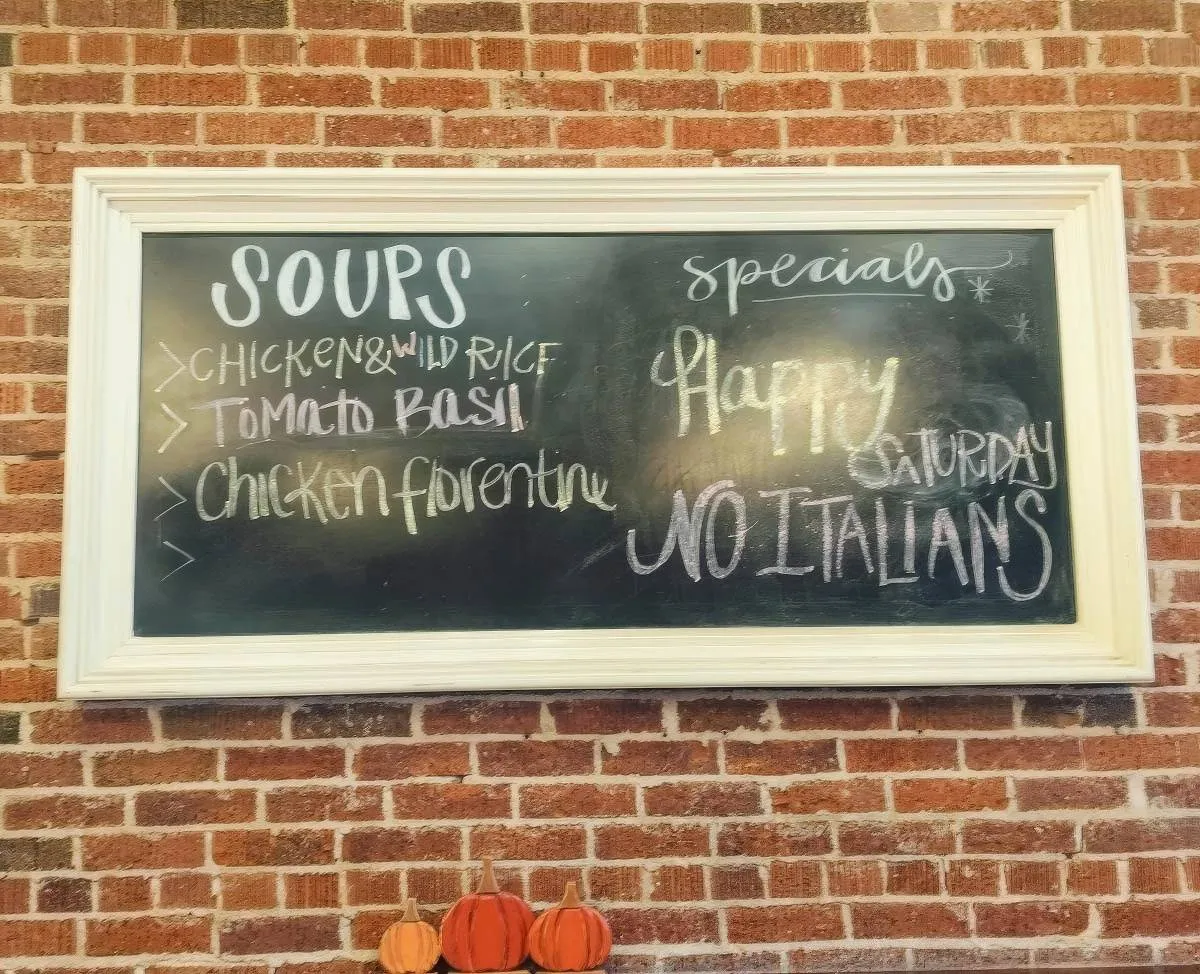 SOUPS
> CHICKEN & WILD RICE
> TOMato BasIl
> Chicken florentine
>
specials
Happy
SATURDAY
NO ITALIANS